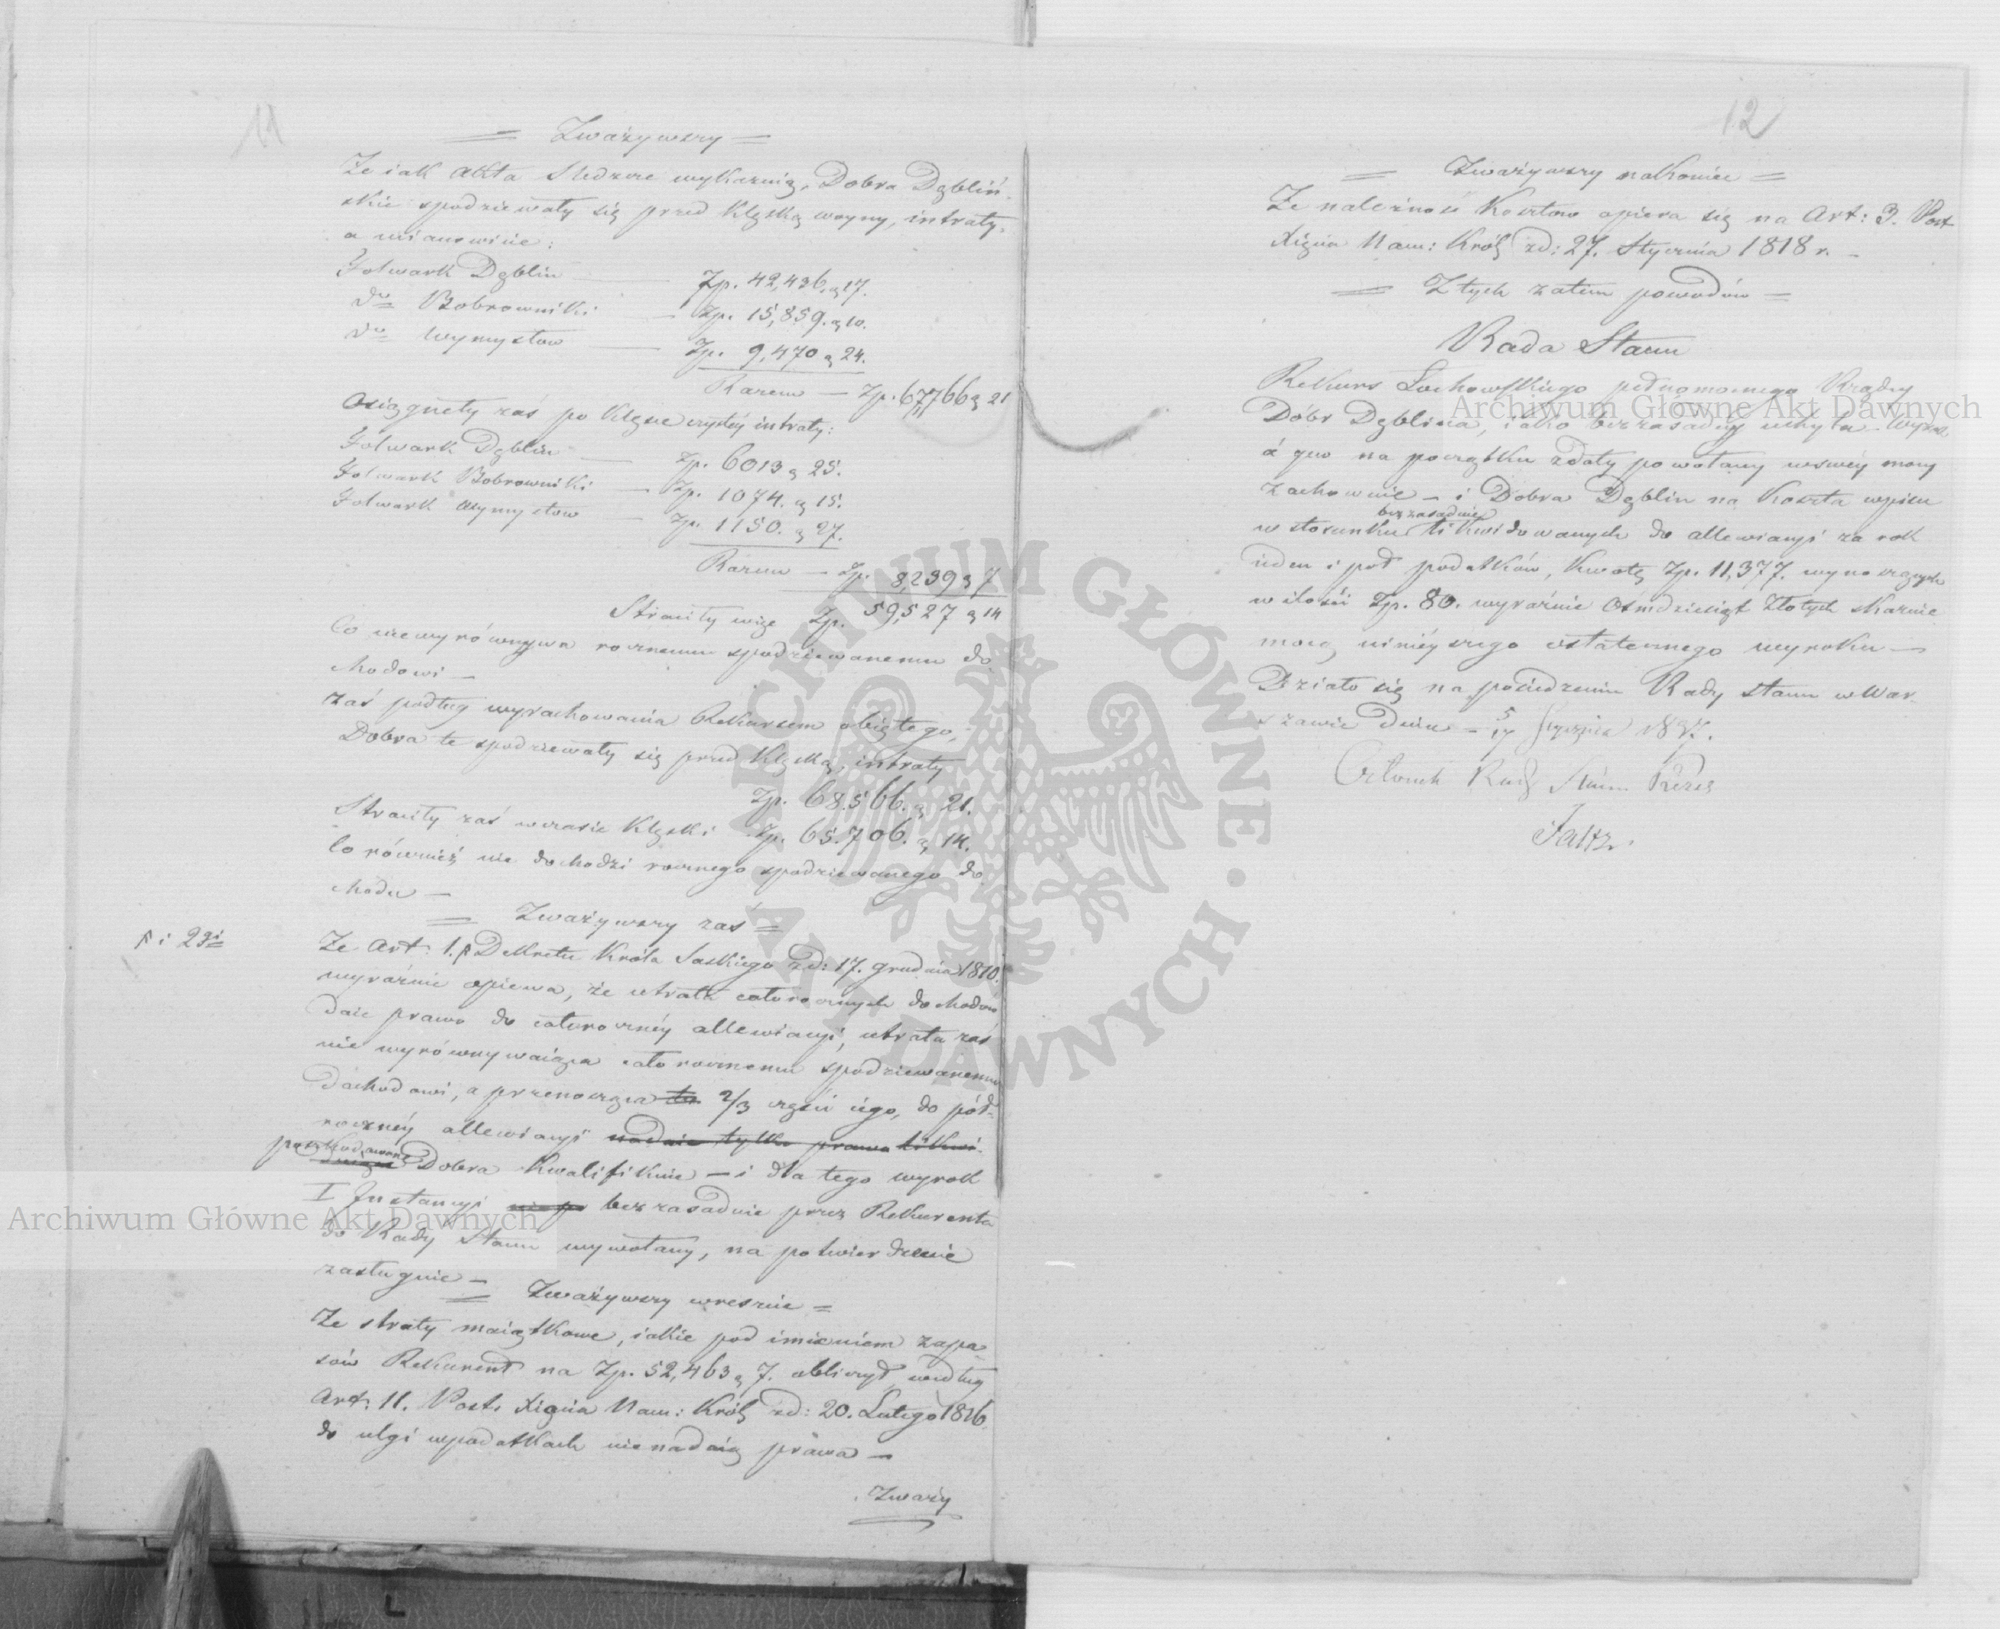 11
= Zważywszy =
Że iak akta śledcze wykazuią, Dobra Dębliń-
skie spodziewały się przed klęską woyny, intraty,
a mianowicie:
Folwark Dęblin — Zp. 42,436 g 17.
dto Bobrowniki — Zp. 15,859. g 10.
dto Wymysłow — Zp. 9,470 g 24.
Razem — Zp. 67,766 g 21
Osiągnęły zaś po klęsce czystéy intraty:
Folwark Dęblin — Zp. 6013 g 25.
Folwark Bobrowniki — Zp. 1074. g 15.
Folwark Wymysłow — Zp. 1150. g 27.
Razem — Zp. 8,239 g 7
Straciły więc Zp. 59,527 g 14
Co niewyrównywa rocznemu spodziewanemu do-
chodowi —
zaś podług wyrachowania Rekursem obiętego,
Dobra te spodziewały się przed klęską, intraty
Zp. 68.566. g 21.
Straciły zaś wczasie klęski Zp. 65.706. g 14.
Co również nie dochodzi rocznego spodziewanego do-
chodu —
= Zważywszy zaś =
i 2gi
Że Art: 1. Dekretu Króla Saskiego zd: 17. grudnia 1810.
wyraźnie opiewa, że utrata całorocznych dochodów
daie prawo do całorocznéy allewiacyi, utrata zaś
nie wyrównywaiąca całorocznemu spodziewanemu
dochodowi, a przenosząca ta 2/3 części iego, do pół-
rocznéy allewiacyi nadaie tylko prawo likwi-
poszkodowane
Dobra kwalifikuie — i dla tego wyrok
I Instancyi bezzasadnie przez Rekurenta
do Rady Stanu wywołany, na potwierdzenie
zasługuie —
= Zważywszy wreszcie =
Że straty maiątkowe, iakie pod imieniem zapa-
sów Rekurent na Zp. 52,463 g 7. obliczył, według
Art: 11. Post. Xięcia Nam: Król: zd: 20. Lutego 1816
do ulgi wpodatkach nienadaią prawa —
Zważy
12
= Zważywszy nakoniec =
Że należność Kosztów opiera się na Art: 3. Post
Xięcia Nam: Król: zd: 27. Stycznia 1818 r. —
= Z tych zatem powodów =
Rada Stanu
Rekurs Lochowskiego pełnomocnego Rządcy
Dóbr Dęblina, iako bezzasadny uchyla — Wyrok
á quo na początku zdaty powołany wswéy mocy
zachowuie — i Dobra Dęblin na koszta wpisu
bezzasadnie
w stosunku likwidowanych do allewiacyi za rok
ieden i pół podatków, kwotę Zp. 11,377. wynoszących
w ilości Zp. 80. wyraźnie Ośmdziesiąt Złotych skazuie
mocą ninieyszego ostatecznego wyroku —
Działo się na posiedzeniu Rady Stanu w War-
szawie dnia — 5/17 Stycznia 1837.
Członek Rady Stanu Prezes
Faltz.
Archiwum Główne Akt Dawnych
Archiwum Główne Akt Dawnych
ARCHIWUM GŁÓWNE • AKT DAWNYCH •